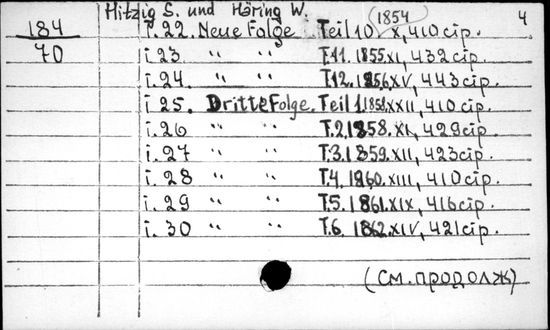 Hitzig S. und Häring W. 4
184 т.22. Neue Folge. Teil 10 (1854) X, 410 стр.
70 т.23 " " T.11. 1855. XI, 432 стр.
т.24. " " T.12. 1856. XV, 443 стр.
т 25. Dritte Folge. Teil 1. 1858. XXII, 410 стр.
т.26 " " T.2. 1858. XI, 429 стр.
т.27 " " T.3. 1859. XII, 423 стр.
т.28 " " T.4. 1860. XIII, 410 стр.
т.29 " " T.5. 1861. XIX, 416 стр.
т.30 " " T.6. 1862. XIV, 421 стр.
(см. продолж)